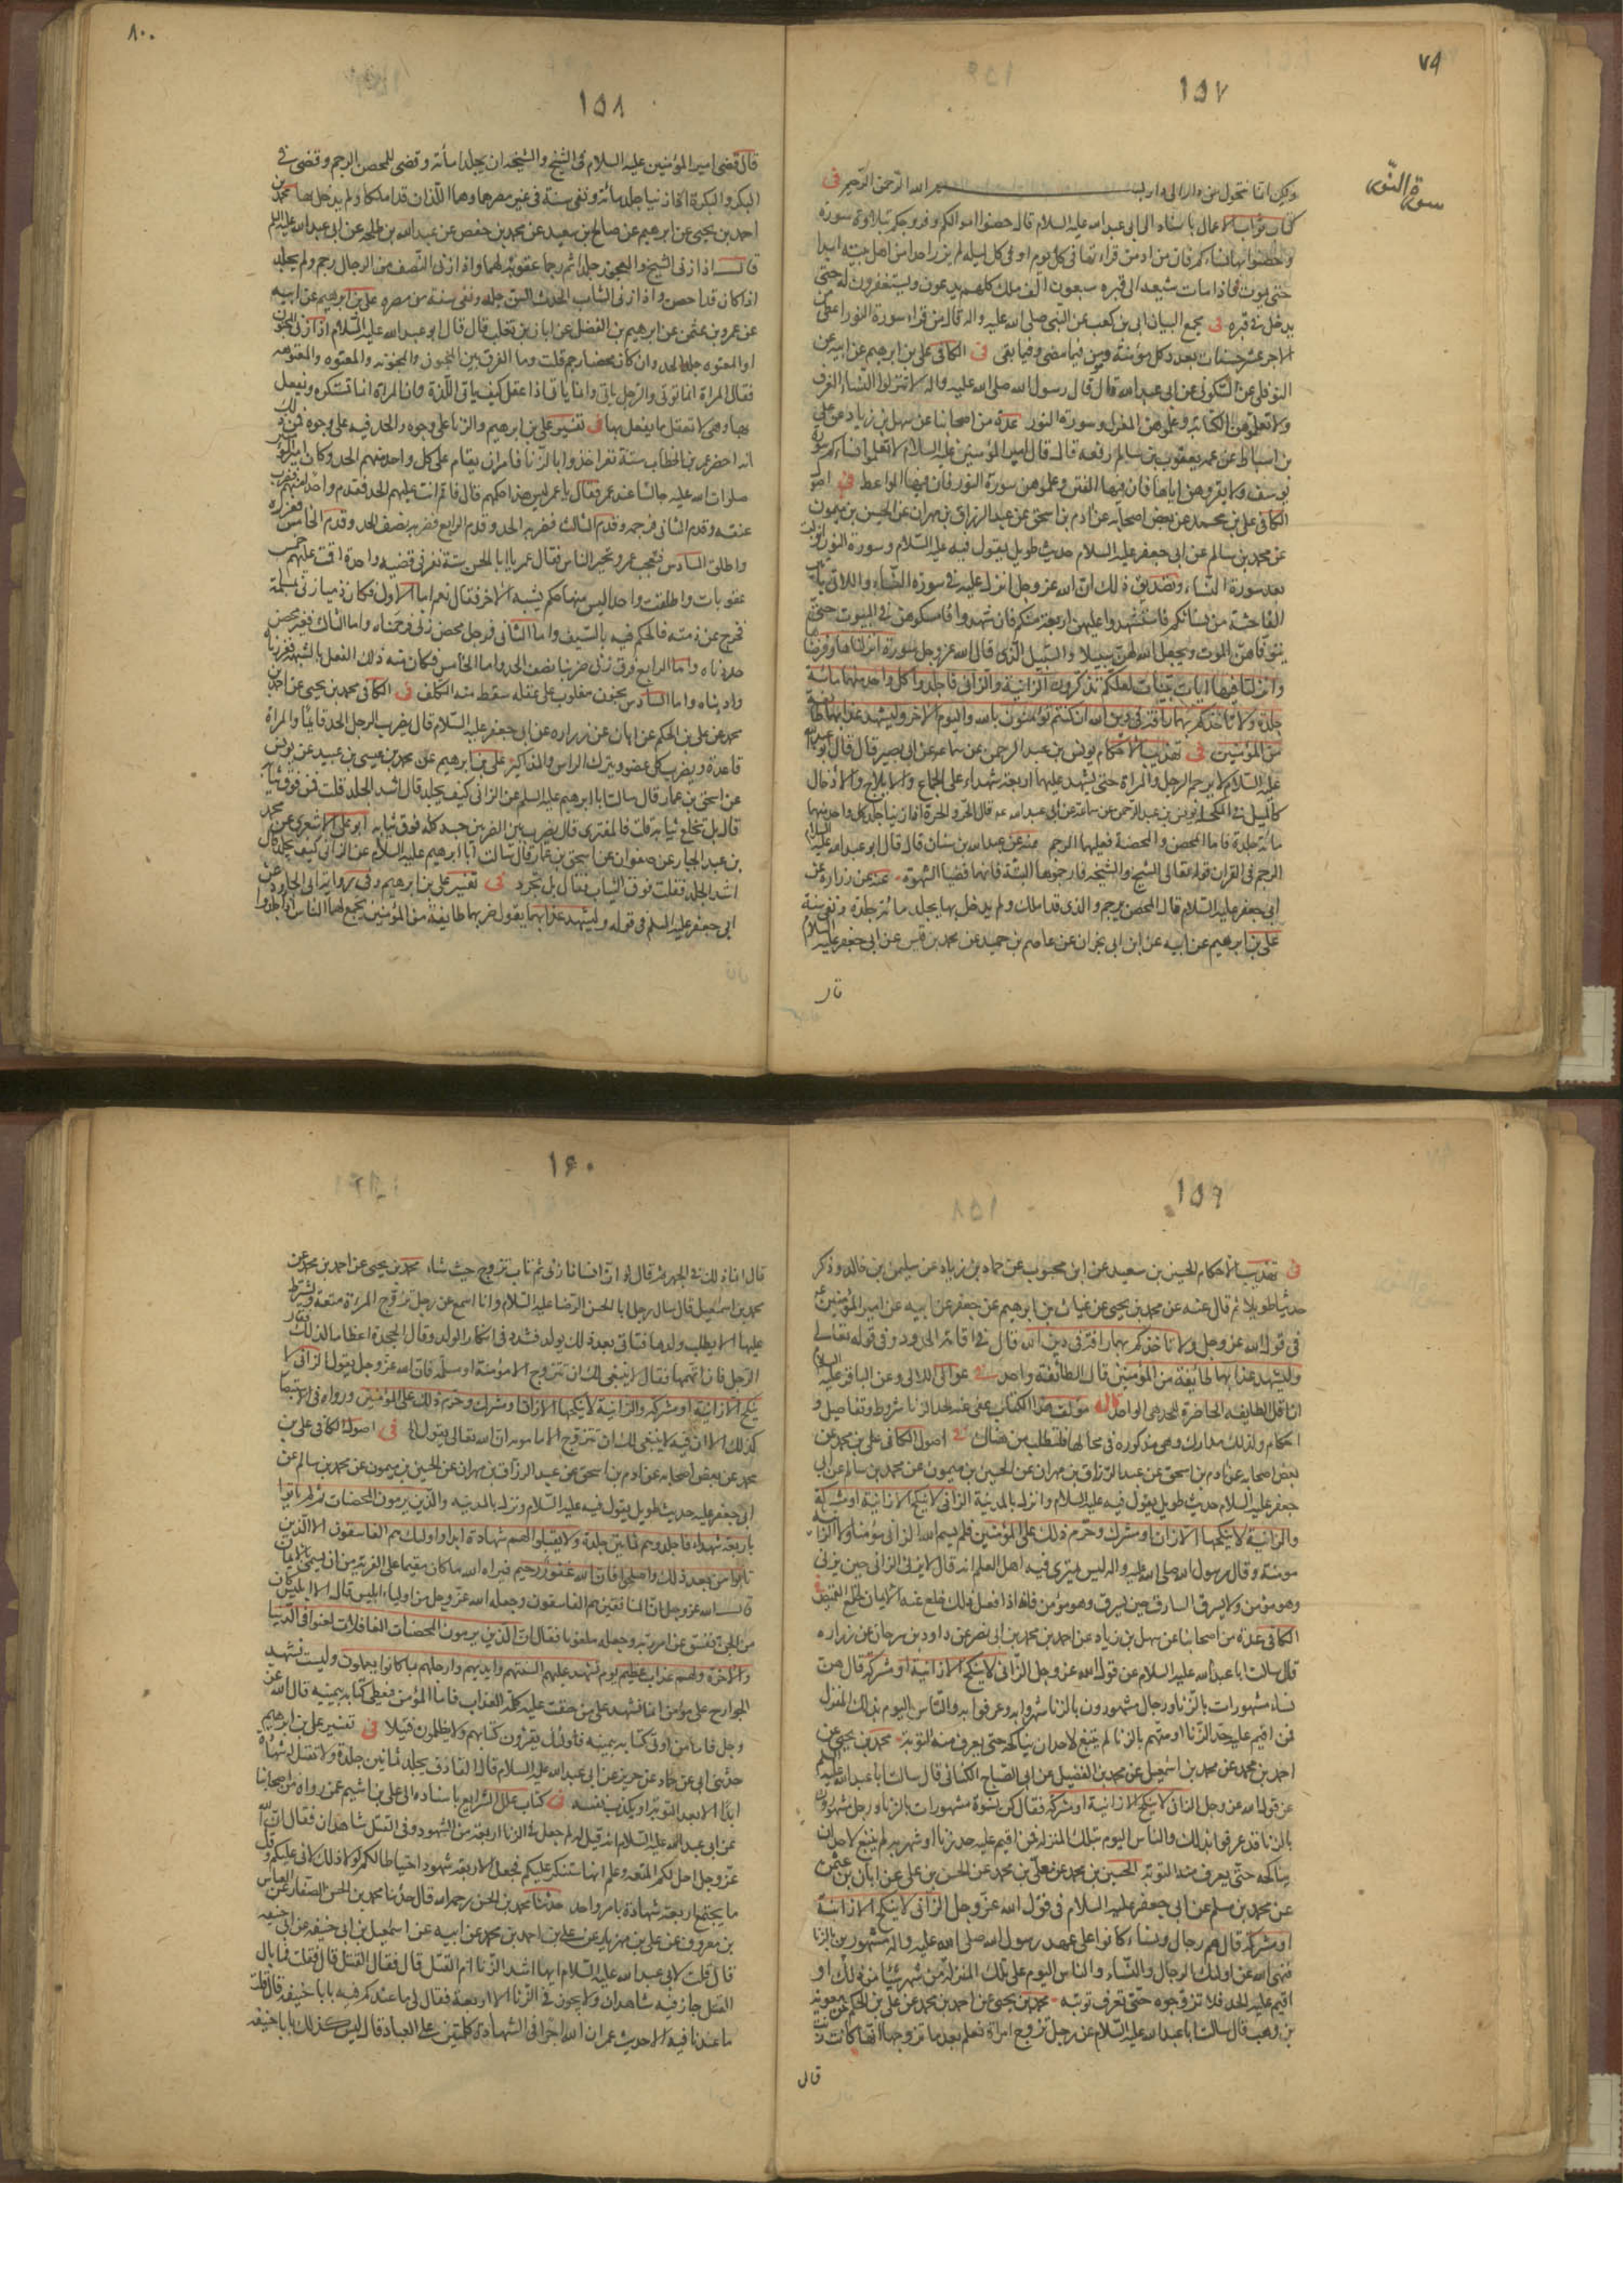 ٧٩
١٥٧
سورة النور
ولكن انما نتحول من دار الى دار بسم الله الرحمن الرحيم فى
كتاب ثواب الاعمال باسناده الى ابى عبد الله عليه السلام قال حصنوا اموالكم وفروجكم بتلاوة سورة
وحصنوا بها نساءكم فان من ادمن قراءتها فى كل يوم او فى كل ليلة لم يزن احد من اهل بيته ابدا
حتى يموت فاذا مات شيعه الى قبره سبعون الف ملك كلهم يدعون ويستغفرون له حتى
يدخل فى قبره فى مجمع البيان ابى بن كعب عن النبى صلى الله عليه واله قال من قراء سورة النور اعطى
الاجر عشر حسنات بعدد كل مؤمنة ومؤمن فيما مضى وفيما بقى فى الكافى على بن ابرهيم عن ابيه عن
النوفلى عن السكونى عن ابى عبد الله قال قال رسول الله صلى الله عليه واله لا تنزلوا النساء الغرف
ولا تعلموهن الكتابة وعلموهن المغزل وسورة النور عدة من اصحابنا عن سهل بن زياد عن على
بن اسباط عن عمه يعقوب بن سالم رفعه قال قال امير المؤمنين عليه السلام لا تعلموا نساءكم سورة
يوسف ولا تقروهن اياها فان فيها الفتن وعلموهن سورة النور فان فيها المواعظ فى اصول
الكافى على بن محمد عن بعض اصحابه عن ادم بن اسحق عن عبد الرزاق بن مهران عن الحسين بن ميمون
عن محمد بن سالم عن ابى جعفر عليه السلام حديث طويل يقول فيه عليه السلام وسورة النور انزلت
بعد سورة النساء وتصديق ذلك ان الله عز وجل انزل عليه فى سورة النساء واللاتى ياتين
الفاحشة من نسائكم فاستشهدوا عليهن اربعة منكم فان شهدوا فامسكوهن فى البيوت حتى
يتوفاهن الموت ويجعل الله لهن سبيلا والسبيل الذى قال الله عز وجل سورة انزلناها وفرضناها
وانزلنا فيها ايات بينات لعلكم تذكرون الزانية والزانى فاجلدوا كل واحد منهما مائة
جلدة ولا تاخذكم بهما رافة فى دين الله ان كنتم تؤمنون بالله واليوم الاخر وليشهد عذابهما طائفة
من المؤمنين فى تهذيب الاحكام يونس بن عبد الرحمن عن سماعه عن ابى بصير قال قال ابو عبد الله
عليه السلام لا يرجم الرجل والمراة حتى يشهد عليهما اربعة شهداء على الجماع والايلاج والادخال
كالميل فى المكحلة يونس بن عبد الرحمن عن سماعة عن ابى عبد الله قال الحر والحرة اذا زنيا جلد كل واحد منهما
مائة جلدة فاما المحصن والمحصنة فعليهما الرجم عنه عن عبد الله بن سنان قال قال ابو عبد الله عليه السلام
الرجم فى القران قوله تعالى الشيخ والشيخة فارجموها البتة فانهما قضيا الشهوة عنه عن زرارة عن
ابى جعفر عليه السلام قال المحصن يرجم والذى قد املك ولم يدخل بها يجلد مائة جلدة ونفى سنة
على بن ابرهيم عن ابيه عن ابن ابى نجران عن عاصم بن حميد عن محمد بن قيس عن ابى جعفر عليه السلام
قال
٨٠
١٥٨
قال قضى امير المؤمنين عليه السلام فى الشيخ والشيخة ان يجلدا مائة وقضى للمحصن الرجم وقضى فى
البكر والبكرة اذا زنيا جلد مائة ونفى سنة فى غير مصرهما وهما اللذان قد املكا ولم يدخل بها محمد بن
احمد بن يحيى عن ابرهيم عن صالح بن سعيد عن محمد بن حفص عن عبد الله بن طلحه عن ابى عبد الله عليه السلم
قال اذا زنى الشيخ والعجوز جلدا ثم رجما عقوبة لهما واذا زنى النصف من الرجال رجم ولم يجلد
اذا كان قد احصن واذا زنى الشاب الحدث السن جلد ونفى سنة من مصره على بن ابرهيم عن ابيه
عن عمرو بن عثمن عن ابرهيم بن الفضل عن ابان بن تغلب قال قال ابو عبد الله عليه السلام اذا زنى المجنون
او المعتوه جلد الحد وان كان محصنا رجم قلت وما الفرق بين المجنون والمجنونة والمعتوه والمعتوهة
فقال المراة انما توتى والرجل ياتى وانما ياتى اذا عقل كيف ياتى اللذة وان المراة انما تستكره ويفعل
بها وهى لا تعقل ما يفعل بها فى تفسير على بن ابرهيم والزنا على وجوه والحد فيه على وجوه فمن ذلك
انه احضر عمر بن الخطاب ستة نفر اخذوا بالزنا فامر ان يقام على كل واحد منهم الحد وكان امير المؤمنين
صلوات الله عليه جالسا عند عمر فقال يا عمر ليس هذا حكمهم قال فاقم انت عليهم الحد فقدم واحدا منهم فضرب
عنقه وقدم الثانى فرجمه وقدم الثالث فضربه الحد وقدم الرابع فضربه نصف الحد وقدم الخامس فعزره
واطلق السادس فتعجب عمر وتحير الناس فقال عمر يا ابا الحسن ستة نفر فى قضية واحدة اقمت عليهم خمس
عقوبات واطلقت واحد اليس منها حكم يشبه الاخر فقال نعم اما الاول فكان ذميا زنى بمسلمة
فخرج عن ذمته فالحكم فيه بالسيف واما الثانى فرجل محصن زنى فرجمناه واما الثالث فغير محصن
حددناه واما الرابع فرق زنى ضربنا نصف الحد واما الخامس فكان منه ذلك الفعل بالشبهة فعزرناه
وادبناه واما السادس مجنون مغلوب على عقله سقط منه التكلف فى الكافى محمد بن يحيى عن احمد بن
محمد عن على بن الحكم عن ابان عن زرارة عن ابى جعفر عليه السلام قال يضرب الرجل الحد قايما والمراة
قاعدة ويضرب كل عضو ويترك الراس والمذاكير على بن ابرهيم عن محمد بن عيسى بن عبيد عن يونس
عن اسحق بن عمار قال سالت ابا ابرهيم عليه السلم عن الزانى كيف يجلد قال اشد الجلد قلت فمن فوق ثيابه
قال بل تخلع ثيابه قلت فالمفترى قال يضرب بين الضربين جسده كله فوق ثيابه ابو على الاشعرى عن محمد
بن عبد الجبار عن صفوان عن اسحق بن عمار قال سالت ابا ابرهيم عليه السلام عن الزانى كيف يجلد قال
اشد الجلد فقلت فوق الثياب فقال بل تجرد فى تفسير على بن ابرهيم وفى رواية ابى الجارود عن
ابى جعفر عليه السلم فى قوله وليشهد عذابهما يقول ضربهما طايفة من المؤمنين يجمع لهما الناس اذا جلدوا
١٥٩
فى تهذيب الاحكام الحسين بن سعيد عن ابن محبوب عن حماد بن زياد عن سليمن بن خالد وذكر
حديثا طويلا ثم قال عنه عن محمد بن يحيى عن غياث بن ابرهيم عن جعفر عن ابيه عن امير المؤمنين
فى قول الله عز وجل ولا تاخذكم بهما رافة فى دين الله قال فى اقامة الحدود وفى قوله تعالى
وليشهد عذابهما طايفة من المؤمنين قال الطائفة واحد فى عوالى اللئالى وعن الباقر عليه السلام
ان اقل الطايفة الحاضرة للحد هى الواحد قال مؤلف هذا الكتاب عفى عنه لحد الزنا شروط وتفاصيل و
احكام ولذلك مدارك وهى مذكورة فى محالها فلتطلب من هناك فى اصول الكافى على بن محمد عن
بعض اصحابه عن ادم بن اسحق عن عبد الرزاق بن مهران عن الحسين بن ميمون عن محمد بن سالم عن ابى
جعفر عليه السلام حديث طويل يقول فيه عليه السلام وانزل بالمدينة الزانى لا ينكح الا زانية او مشركة
والزانية لا ينكحها الا زان او مشرك وحرم ذلك على المؤمنين فلم يسم الله الزانى مؤمنا ولا الزانية
مومنة وقال رسول الله صلى الله عليه واله ليس يمترى فيه اهل العلم انه قال لا يزنى الزانى حين يزنى
وهو مؤمن ولا يسرق السارق حين يسرق وهو مؤمن فانه اذا فعل ذلك خلع عنه الايمان كخلع القميص فى
الكافى عدة من اصحابنا عن سهل بن زياد عن احمد بن محمد بن ابى نصر عن داود بن سرحان عن زرارة
قال سالت ابا عبد الله عليه السلام عن قول الله عز وجل الزانى لا ينكح الا زانية او مشركة قال هن
نساء مشهورات بالزنا ورجال مشهورون بالزنا شهروا به وعرفوا به والناس اليوم بذلك المنزل
فمن اقيم عليه حد الزنا او متهم بالزنا لم ينبغ لاحد ان يناكحه حتى يعرف منه التوبة محمد بن يحيى عن
احمد بن محمد عن محمد بن اسمعيل عن محمد بن الفضيل عن ابى الصباح الكنانى قال سالت ابا عبد الله عليه السلم
عن قول الله عز وجل الزانى لا ينكح الا زانية او مشركة فقال كن نسوة مشهورات بالزنا ورجل مشهورون
بالزنا قد عرفوا بذلك والناس اليوم بتلك المنزلة فمن اقيم عليه حد زنا او شهر به لم ينبغ لاحد ان
يناكحه حتى يعرف منه التوبة الحسين بن محمد عن معلى بن محمد عن الحسن بن على عن ابان بن عثمن
عن محمد بن مسلم عن ابى جعفر عليه السلام فى قول الله عز وجل الزانى لا ينكح الا زانية
او مشركة قال هم رجال ونساء كانوا على عهد رسول الله صلى الله عليه واله مشهورين بالزنا
فنهى الله عن اولئك الرجال والنساء والناس اليوم على تلك المنزلة من شهر شيئا من ذلك او
اقيم عليه الحد فلا تزوجوه حتى تعرف توبته محمد بن يحيى عن احمد بن محمد عن على بن الحكم عن معوية
بن وهب قال سالت ابا عبد الله عليه السلام عن رجل تزوج امراة فعلم بعد ما تزوجها انها كانت زنت
قال
١٦٠
قال انما ذلك فى الجهر ثم قال لو ان انسانا زنى ثم تاب تزوج حيث شاء محمد بن يحيى عن احمد بن محمد عن
محمد بن اسمعيل قال سال رجل ابا الحسن الرضا عليه السلام وانا اسمع عن رجل تزوج المراة متعة ويشترط
عليها الا يطلب ولدها فتاتى بعد ذلك بولد فشدد فى انكار الولد وقال ايجحده اعظاما لذلك
الرجل فان اتهمها فقال لا ينبغى لك ان تتزوج الا مؤمنة او مسلمة فان الله عز وجل يقول الزانى لا
ينكح الا زانية او مشركة والزانية لا ينكحها الا زان او مشرك وحرم ذلك على المؤمنين ورواه فى الاستبصار
كذلك الا ان فيه لا ينبغى لك ان تتزوج الا مامونة ان الله تعالى يقول الخ فى اصول الكافى على بن
محمد عن بعض اصحابه عن ادم بن اسحق عن عبد الرزاق بن مهران عن الحسين بن ميمون عن محمد بن سالم عن
ابى جعفر عليه حديث طويل يقول فيه عليه السلام ونزل بالمدينه والذين يرمون المحصنات ثم لم ياتوا
باربعة شهداء فاجلدوهم ثمانين جلدة ولا تقبلوا لهم شهادة ابدا واولئك هم الفاسقون الا الذين
تابوا من بعد ذلك واصلحوا فان الله غفور رحيم فبراه الله ما كان مقيما على الفرية من ان يسمى بالايمان
قال الله عز وجل ان المنافقين هم الفاسقون وجعله الله عز وجل من اولياء ابليس قال الا ابليس كان
من الجن ففسق عن امر ربه وجعله ملعونا فقال ان الذين يرمون المحصنات الغافلات لعنوا فى الدنيا
والاخرة ولهم عذاب عظيم يوم تشهد عليهم السنتهم وايديهم وارجلهم بما كانوا يعملون وليست تشهد
الجوارح على مؤمن انما تشهد على من حقت عليه كلمة العذاب فاما المؤمن فيعطى كتابه بيمينه قال الله عز
وجل فاما من اوتى كتابه بيمينه فاولئك يقرؤن كتابهم ولا يظلمون فتيلا فى تفسير على بن ابرهيم
حدثنى ابى عن حماد عن حريز عن ابى عبد الله عليه السلام قال القاذف يجلد ثمانين جلدة ولا تقبل شهادة
ابدا الا بعد التوبة او يكذب نفسه فى كتاب علل الشرايع باسناده الى على بن اشيم عمن رواه من اصحابنا
عن ابى عبد الله عليه السلام انه قيل له لم جعل فى الزنا اربعة من الشهود وفى القتل شاهدان فقال ان الله
عز وجل احل لكم المتعة وعلم انها ستنكر عليكم فجعل الاربعة شهود احتياطا لكم لولا ذلك لاتى عليكم وقل
ما يجتمع اربعة شهادة بامر واحد حدثنا محمد بن الحسن رحمه الله قال حدثنا محمد بن الحسن الصفار عن العباس
بن معروف عن على بن مهزيار عن على بن احمد بن محمد عن ابيه عن اسمعيل بن ابى حنيفة عن ابى حنيفه
قال قلت لابى عبد الله عليه السلام ايهما اشد الزنا ام القتل قال فقال القتل قال فقلت فما بال
القتل جاز فيه شاهدان ولا يجوز فى الزنا الا اربعة فقال لى ما عندكم فيه يا با حنيفة قال قلت
ما عندنا فيه الا حديث عمر ان الله اجرى فى الشهادة كلمتين على العباد قال ليس كذلك يا با حنيفه